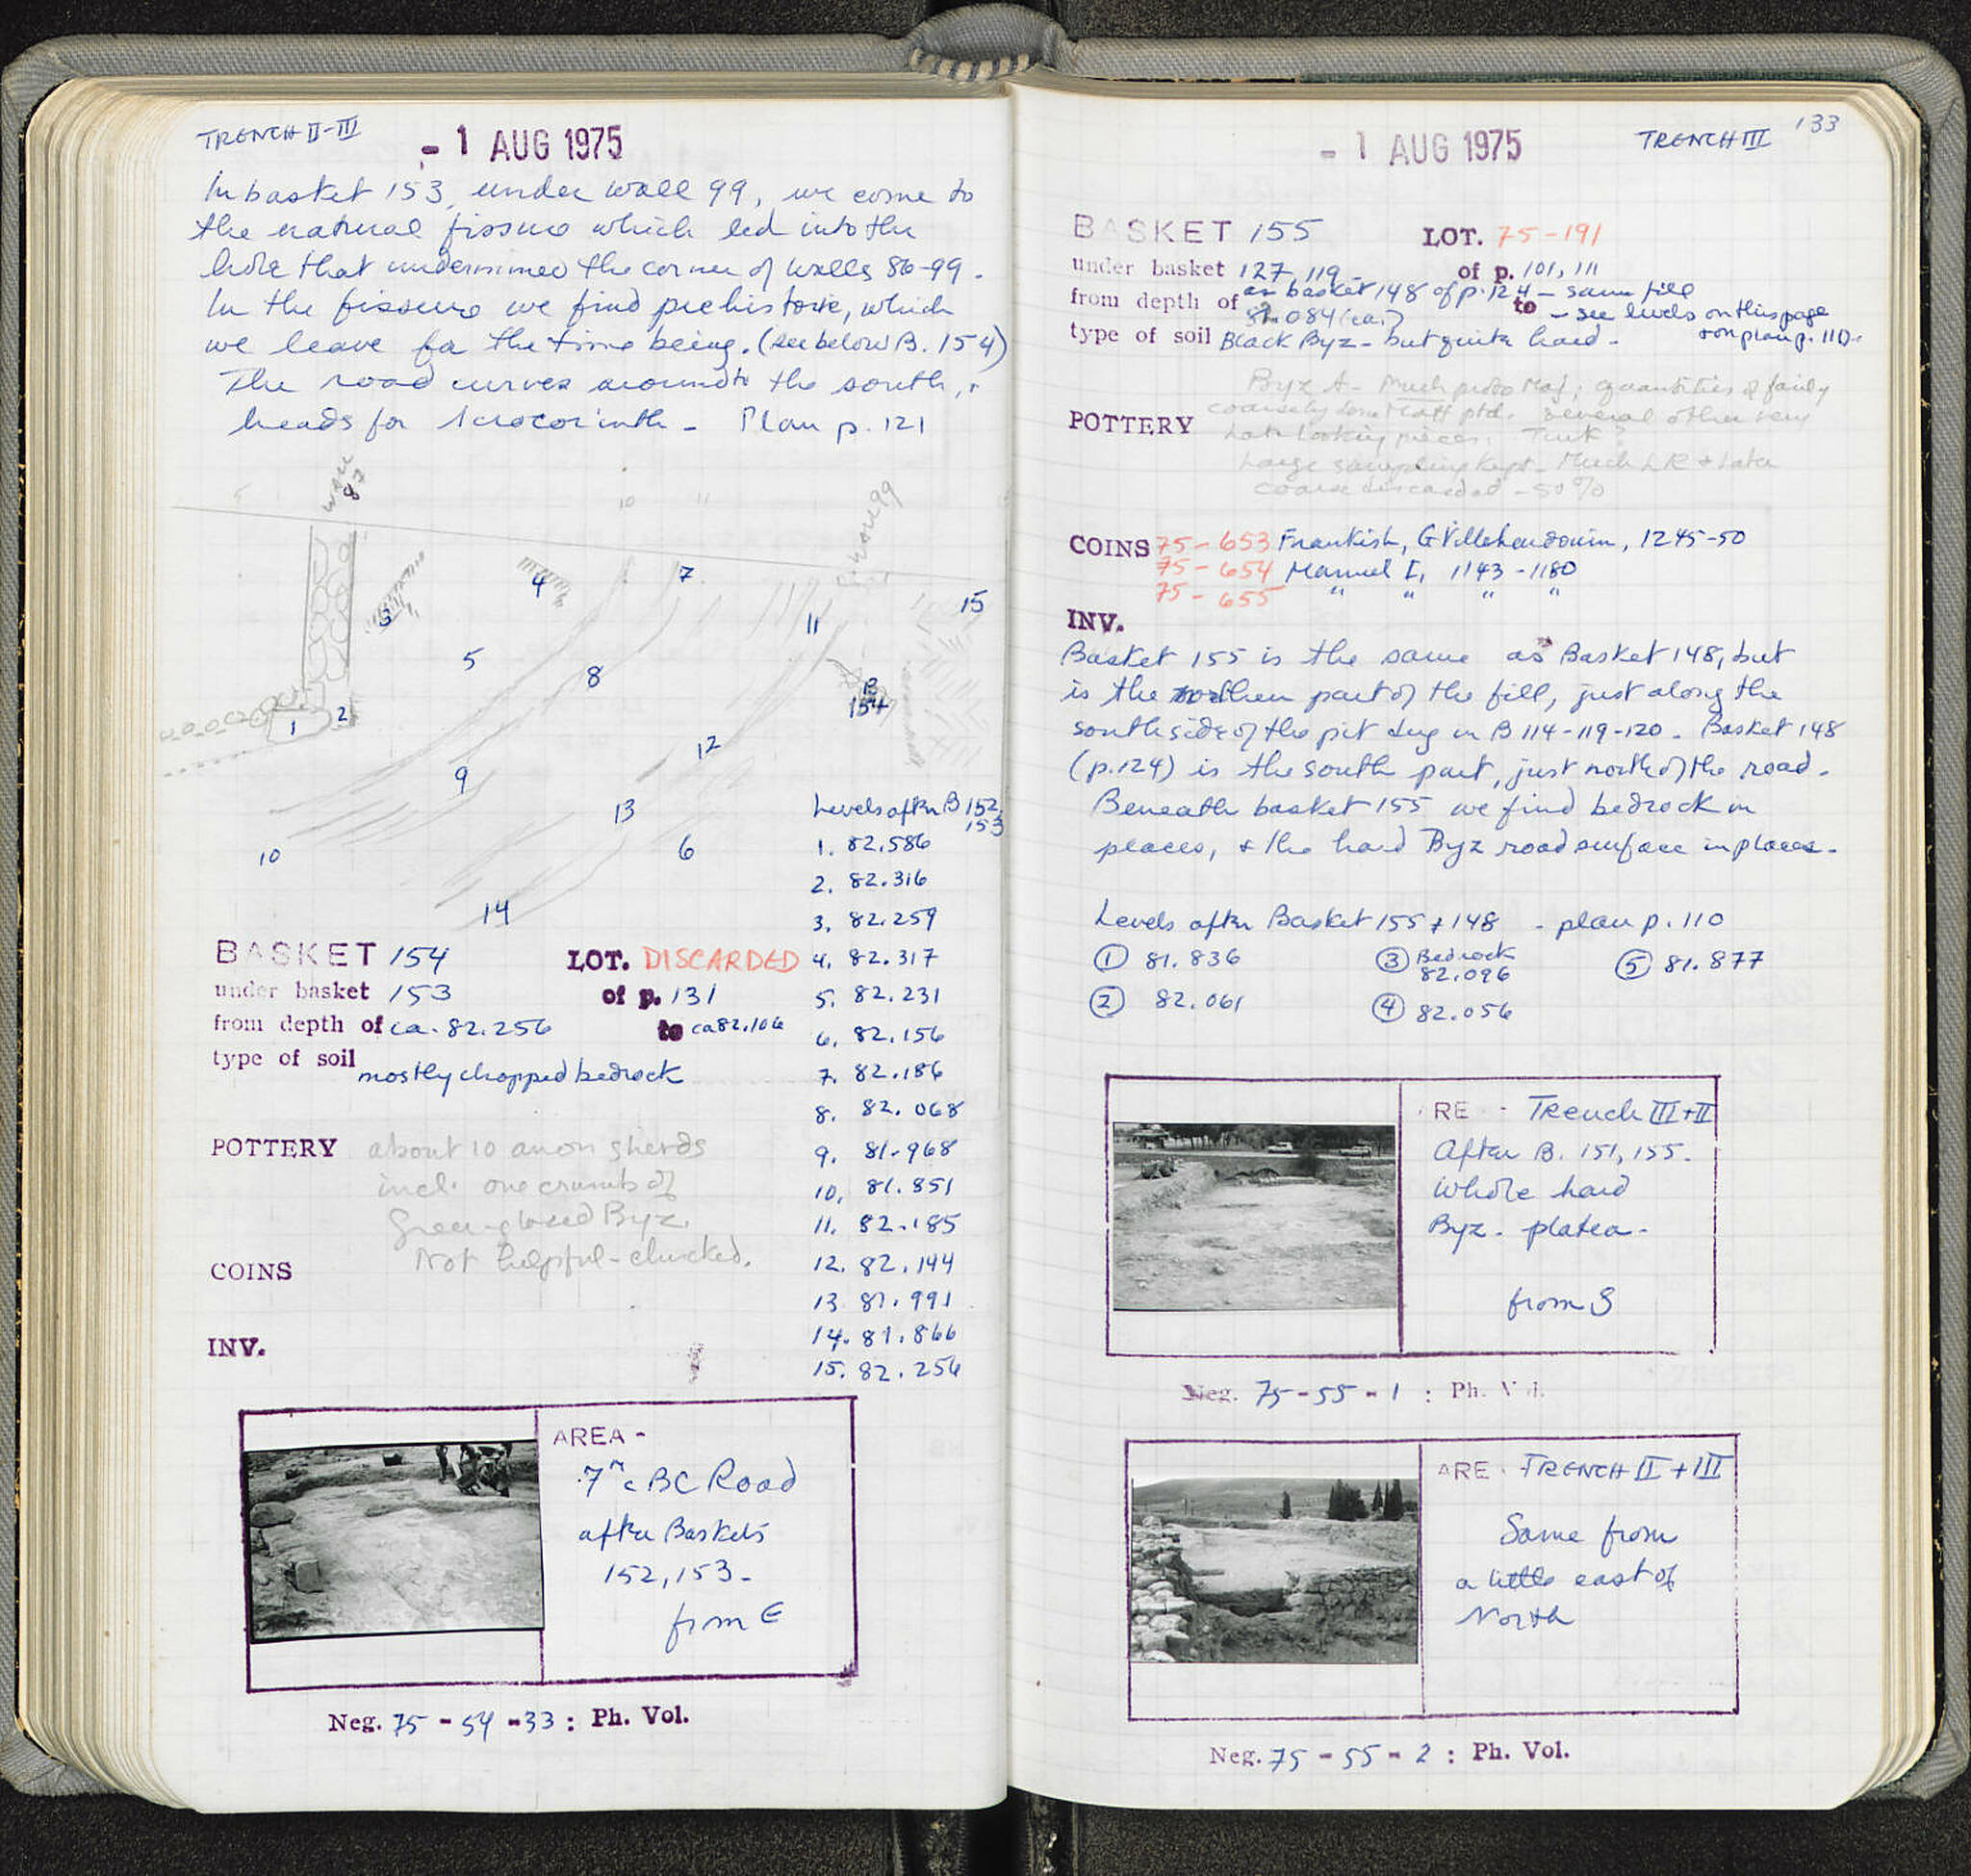 TRENCH II-III
- 1 AUG 1975
In basket 153, under wall 99, we come to
the natural fissure which led into the
hole that undermined the corner of walls 86-99.
In the fissure we find prehistoric, which
we leave for the time being. (see below B. 154)
The road curves around to the south, +
heads for Acrocorinth - Plan p. 121
5
wall 83
10
11
wall 99
3
4
7
11
15
5
8
B
154
1
2
12
9
13
10
6
14
Levels after B 152,
153
1. 82.586
2. 82.316
3. 82.259
4. 82.317
5. 82.231
6. 82.156
7. 82.186
8. 82.068
9. 81.968
10. 81.851
11. 82.185
12. 82.144
13 81.991
14. 81.866
15. 82.256
BASKET 154 LOT. DISCARDED
under basket 153 of p. 131
from depth of ca. 82.256 to ca 82.106
type of soil mostly chopped bedrock
POTTERY about 10 anon sherds
incl. one crumb of
Green-glazed Byz.
Not helpful - chucked.
COINS
INV.
AREA -
7th c BC Road
after Baskets
152, 153 -
from E
Neg. 75 - 54 - 33 : Ph. Vol.
133
- 1 AUG 1975 TRENCH III
BASKET 155 LOT. 75-191
under basket 127, 119 - of p. 101, 111
as basket 148 of p. 124 - same fill
from depth of 82.084 (ca.) to - see levels on this page
+ on plan p. 110.
type of soil Black Byz - but quite hard -
Byz A - Much proto Maj; quantities of fairly
coarsely done ptd. several other very
POTTERY
late looking pieces. Turk?
Large sampling kept - Much LR + late
coarse discarded - 50%
COINS 75-653 Frankish, G Villehardouin, 1245-50
75-654 Manuel I, 1143-1180
75-655 " " " "
INV.
Basket 155 is the same as Basket 148, but
is the northern part of the fill, just along the
south side of the pit dug in B 114-119-120. Basket 148
(p. 124) is the south part, just north of the road.
Beneath basket 155 we find bedrock in
places, + the hard Byz road surface in places.
Levels after Basket 155 + 148 - plan p. 110
① 81.836 ③ Bedrock 82.096 ⑤ 81.877
② 82.061 ④ 82.056
RE - Trench III + II
After B. 151, 155.
Whole hard
Byz. platea -
from S
Neg. 75 - 55 - 1 : Ph. Vol.
ARE - TRENCH II + III
Same from
a little east of
North
Neg. 75 - 55 - 2 : Ph. Vol.